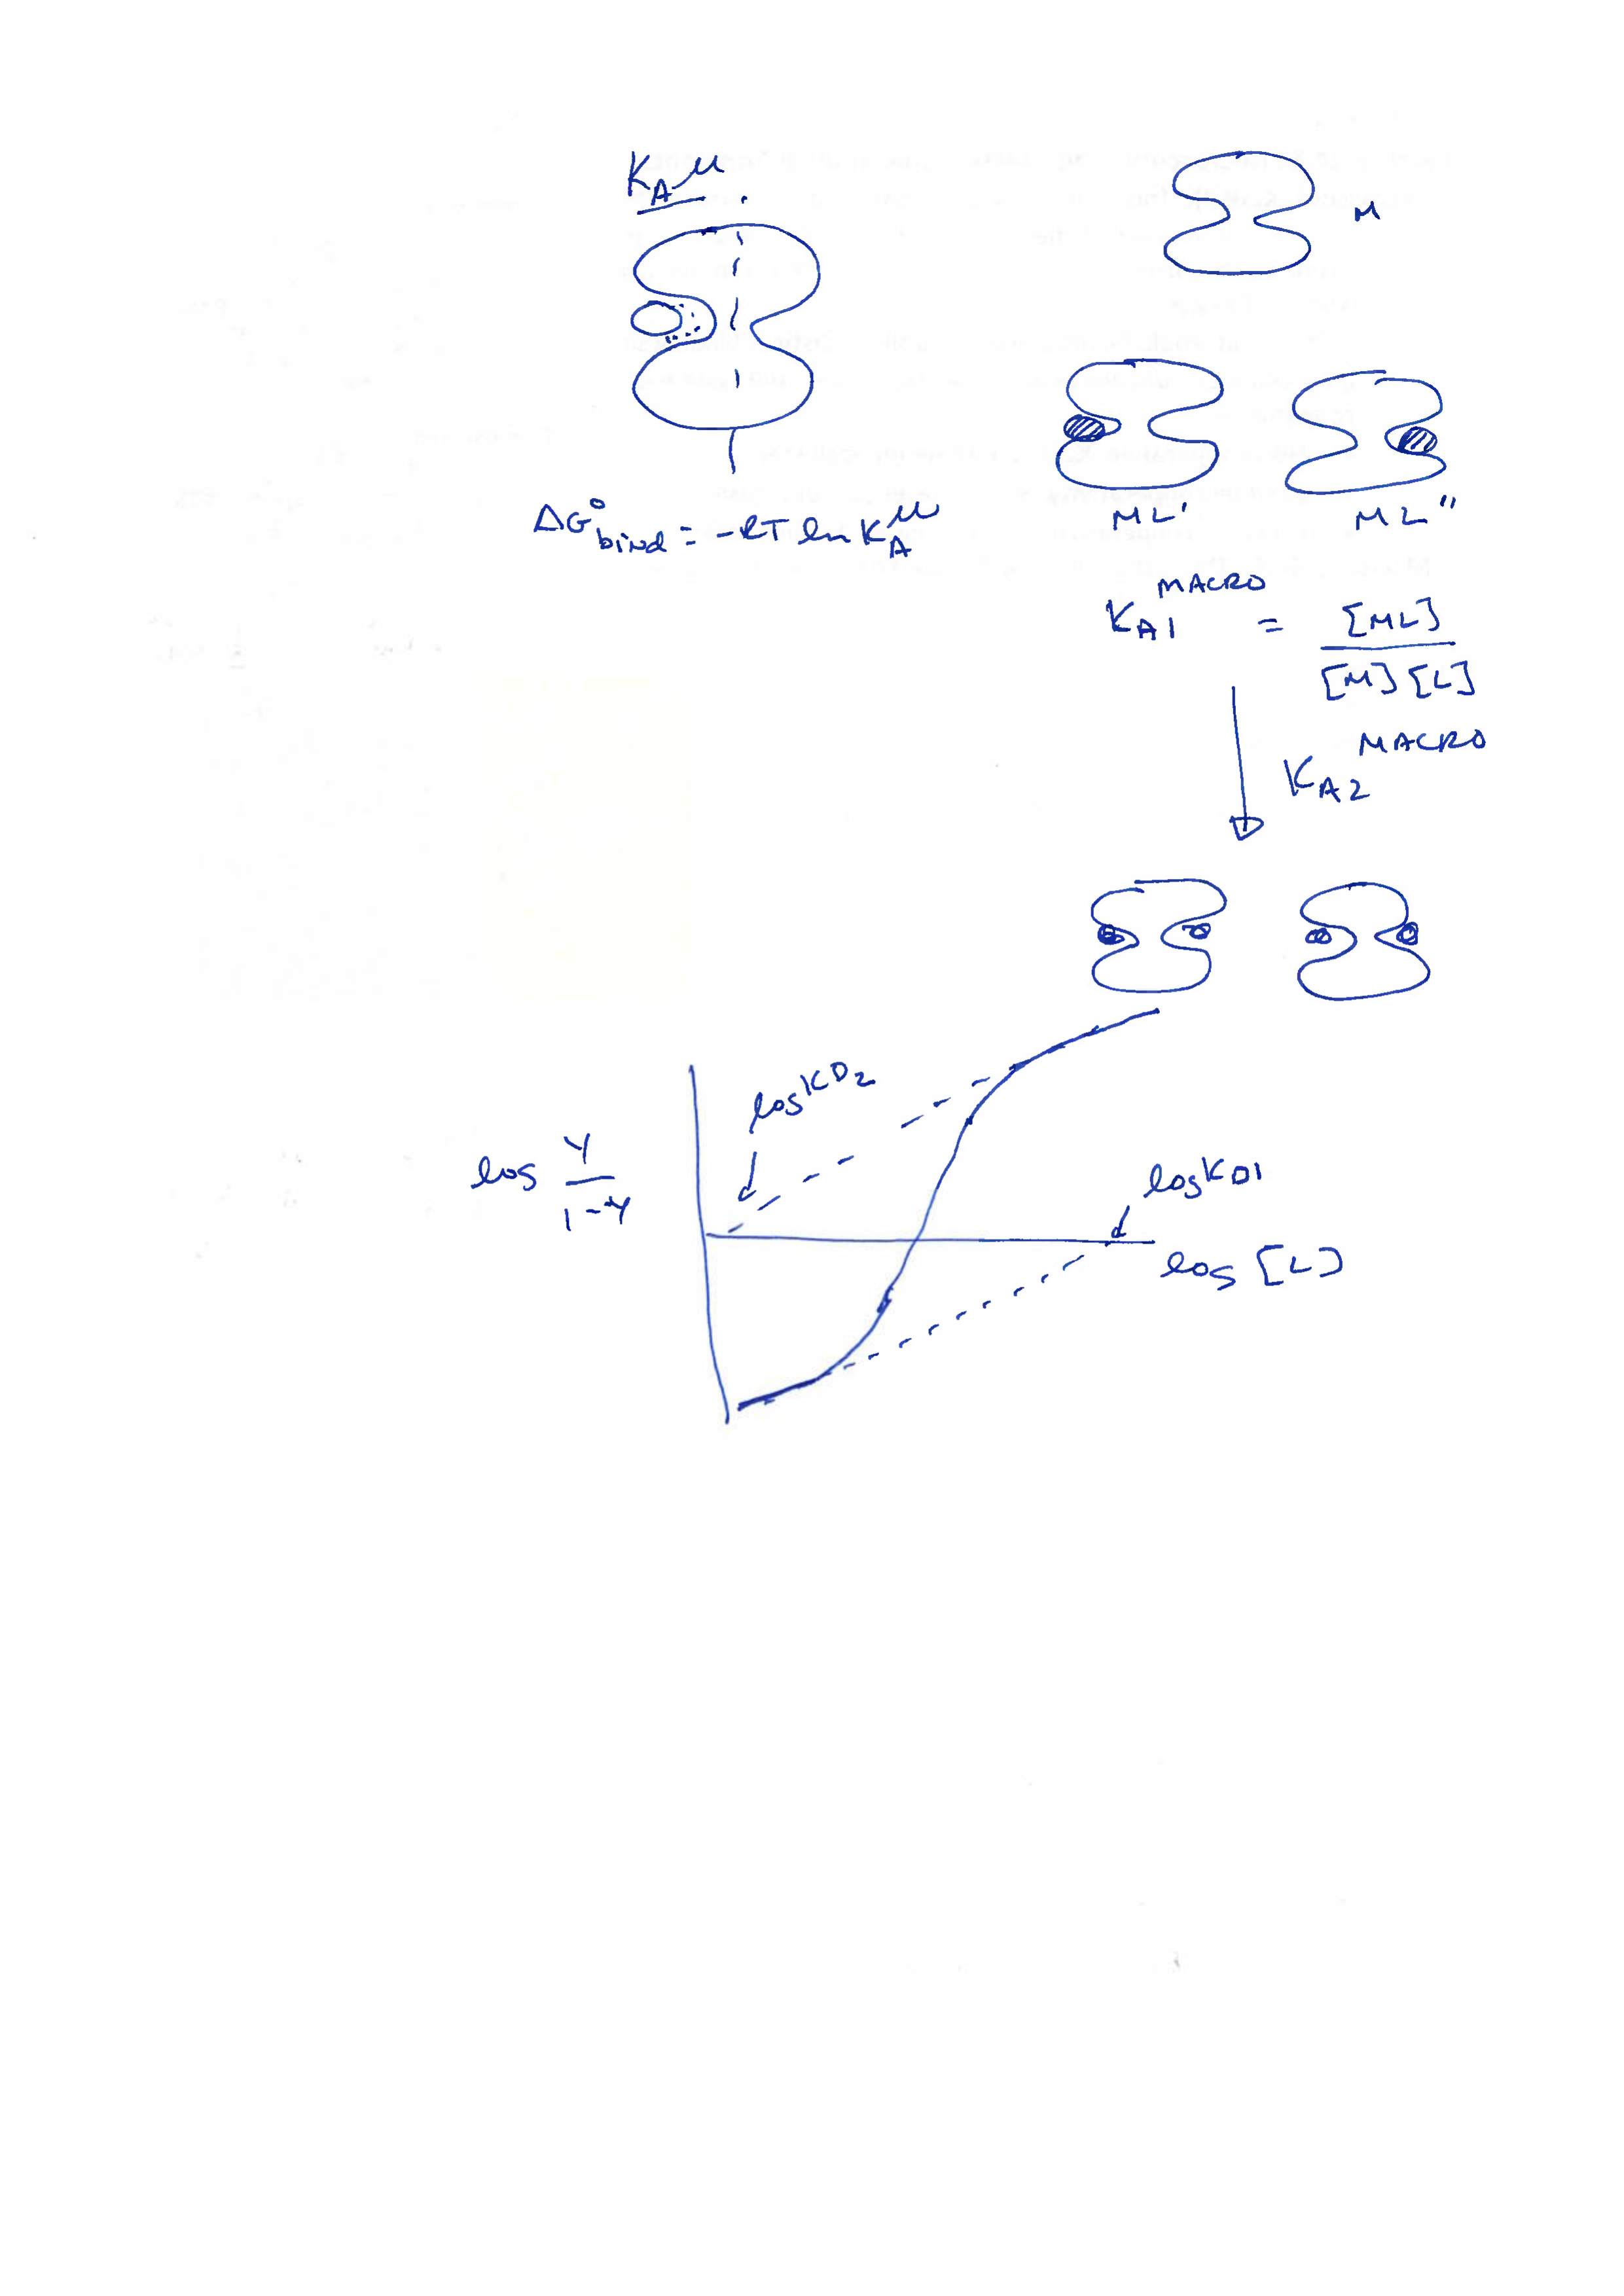 K_A^μ
M
ΔG°bind = -RT ln K_A^μ
ML'
ML"
K_A1^MACRO = [ML] / [M][L]
K_A2^MACRO
log KD2
log Y / 1-Y
log KD1
log [L]